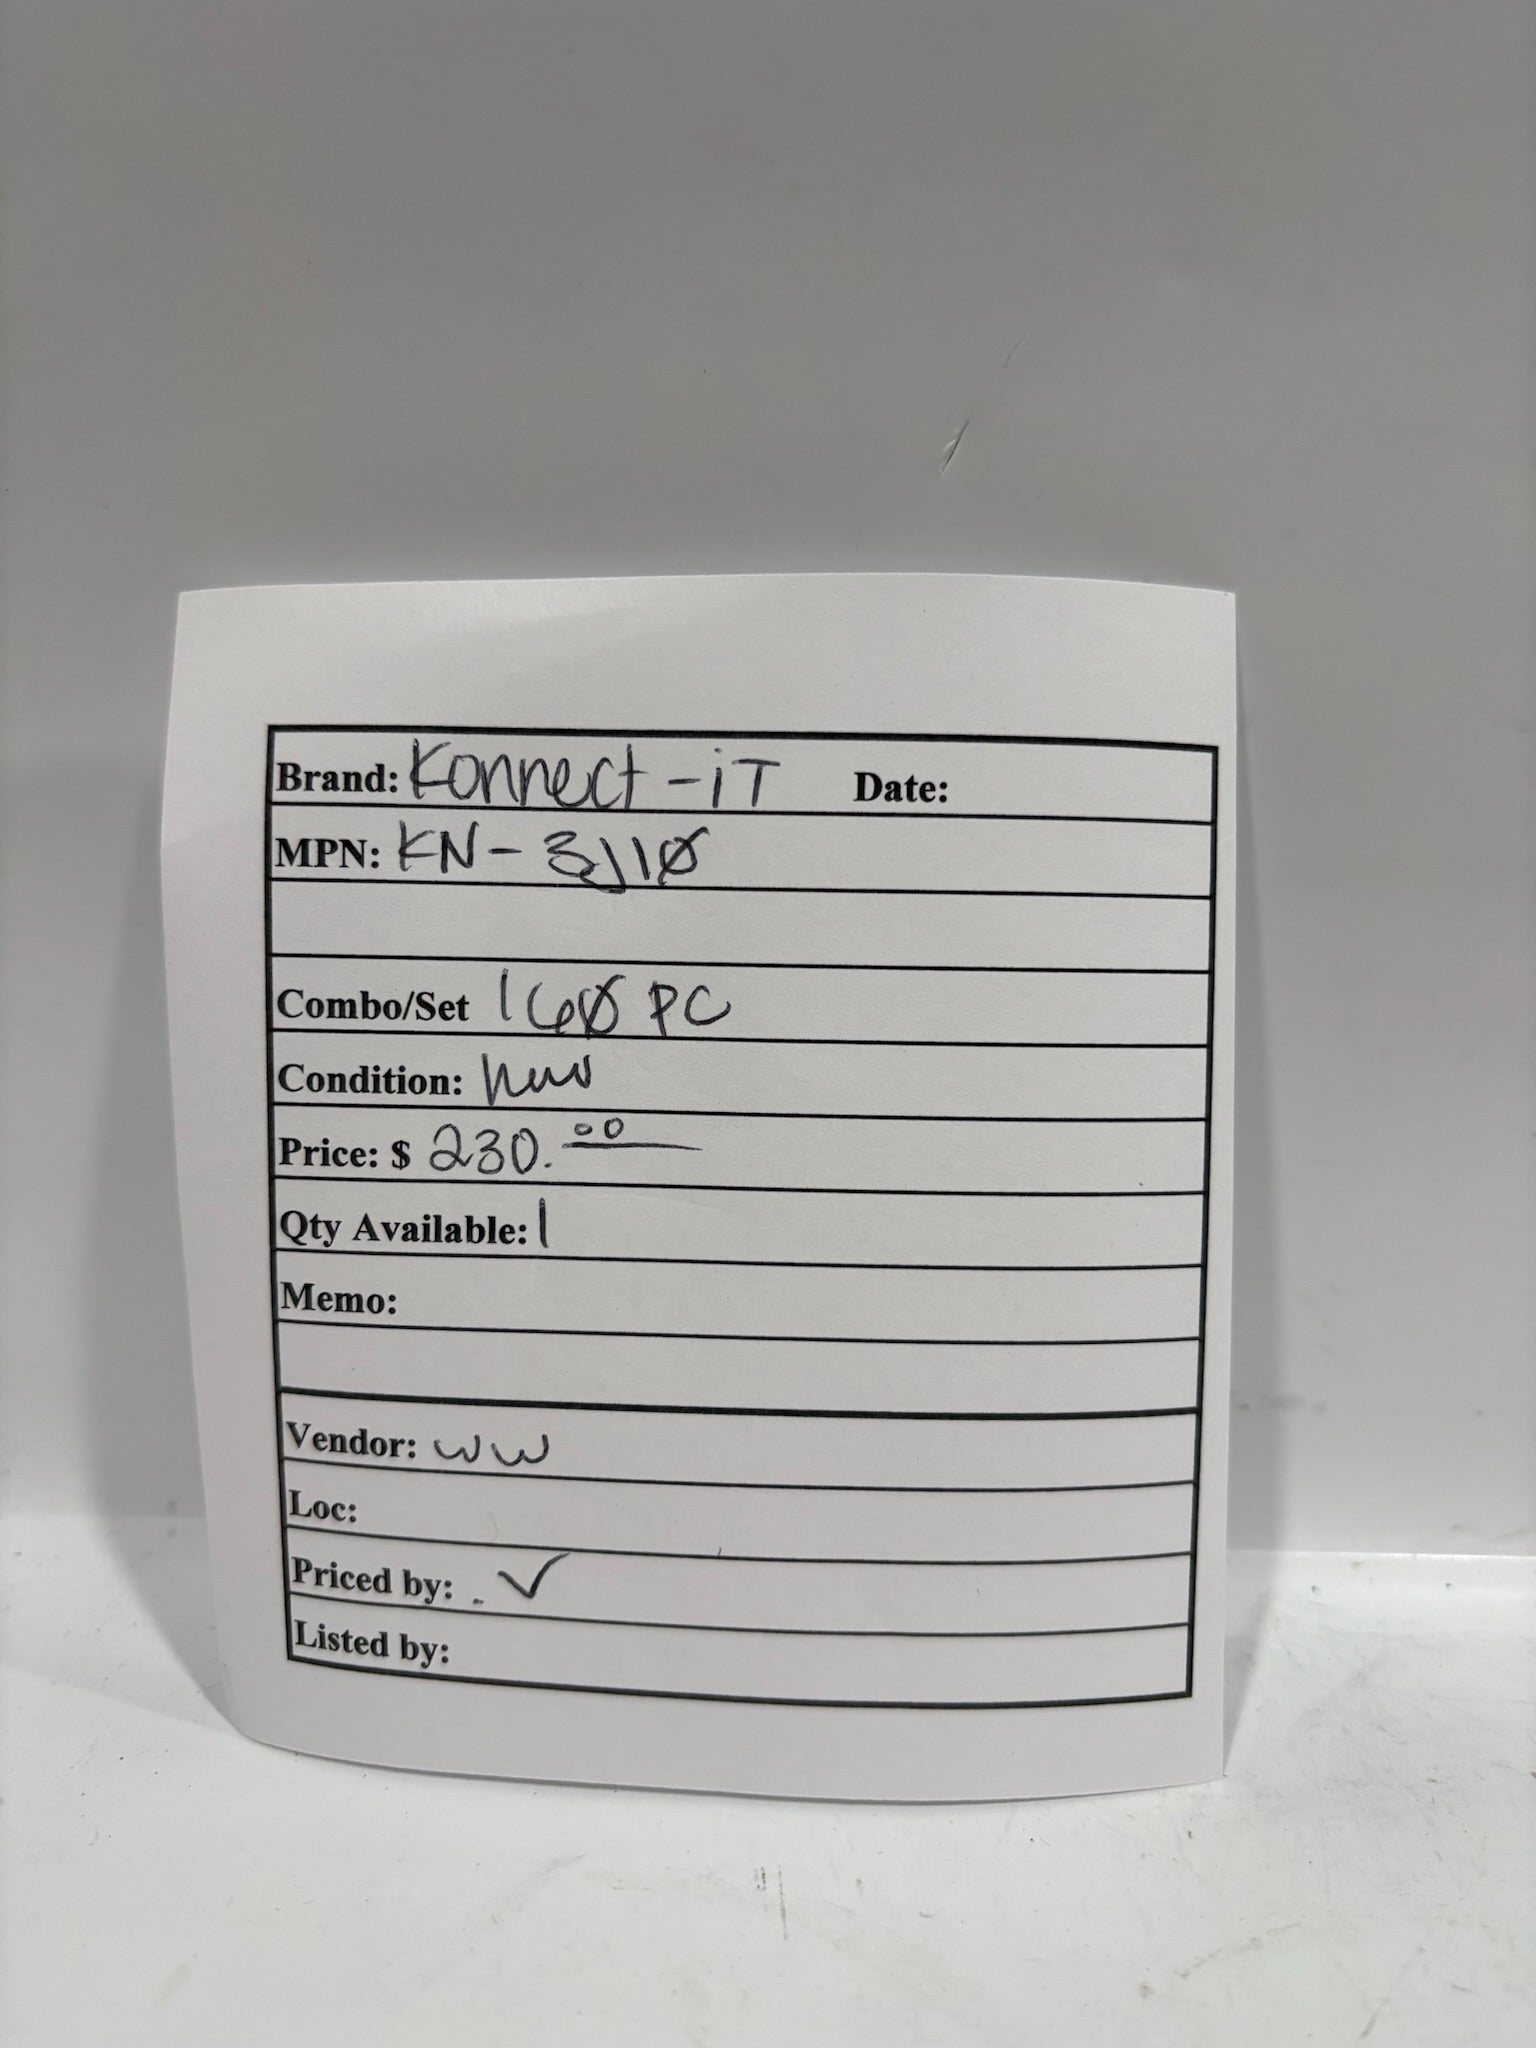 Brand: Konnect-iT Date:
MPN: KN-3J10
Combo/Set 160 PC
Condition: new
Price: $ 230.00
Qty Available: 1
Memo:
Vendor: WW
Loc:
Priced by: ✓
Listed by: